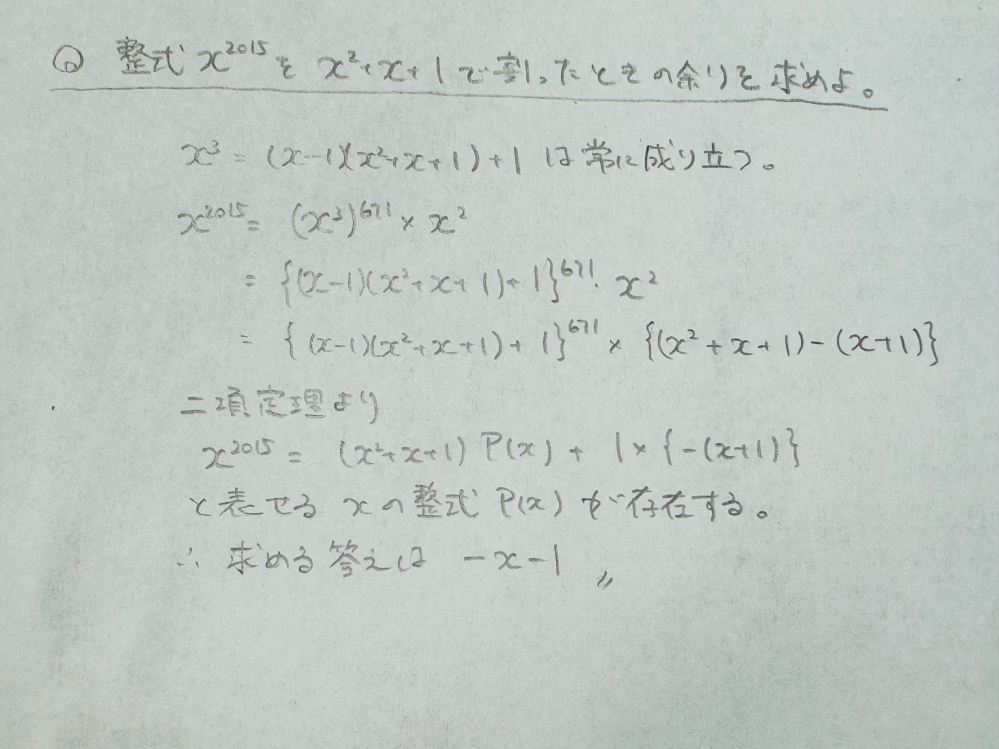 Q 整式 x^2015 を x²+x+1 で割ったときの余りを求めよ。
x³ = (x-1)(x²+x+1)+1 は常に成り立つ。
x^2015 = (x³)^671 × x²
= {(x-1)(x²+x+1)+1}^671・x²
= {(x-1)(x²+x+1)+1}^671 × {(x²+x+1)-(x+1)}
二項定理より
x^2015 = (x²+x+1)P(x) + 1×{-(x+1)}
と表せる xの整式 P(x) が存在する。
∴ 求める答えは -x-1 〃